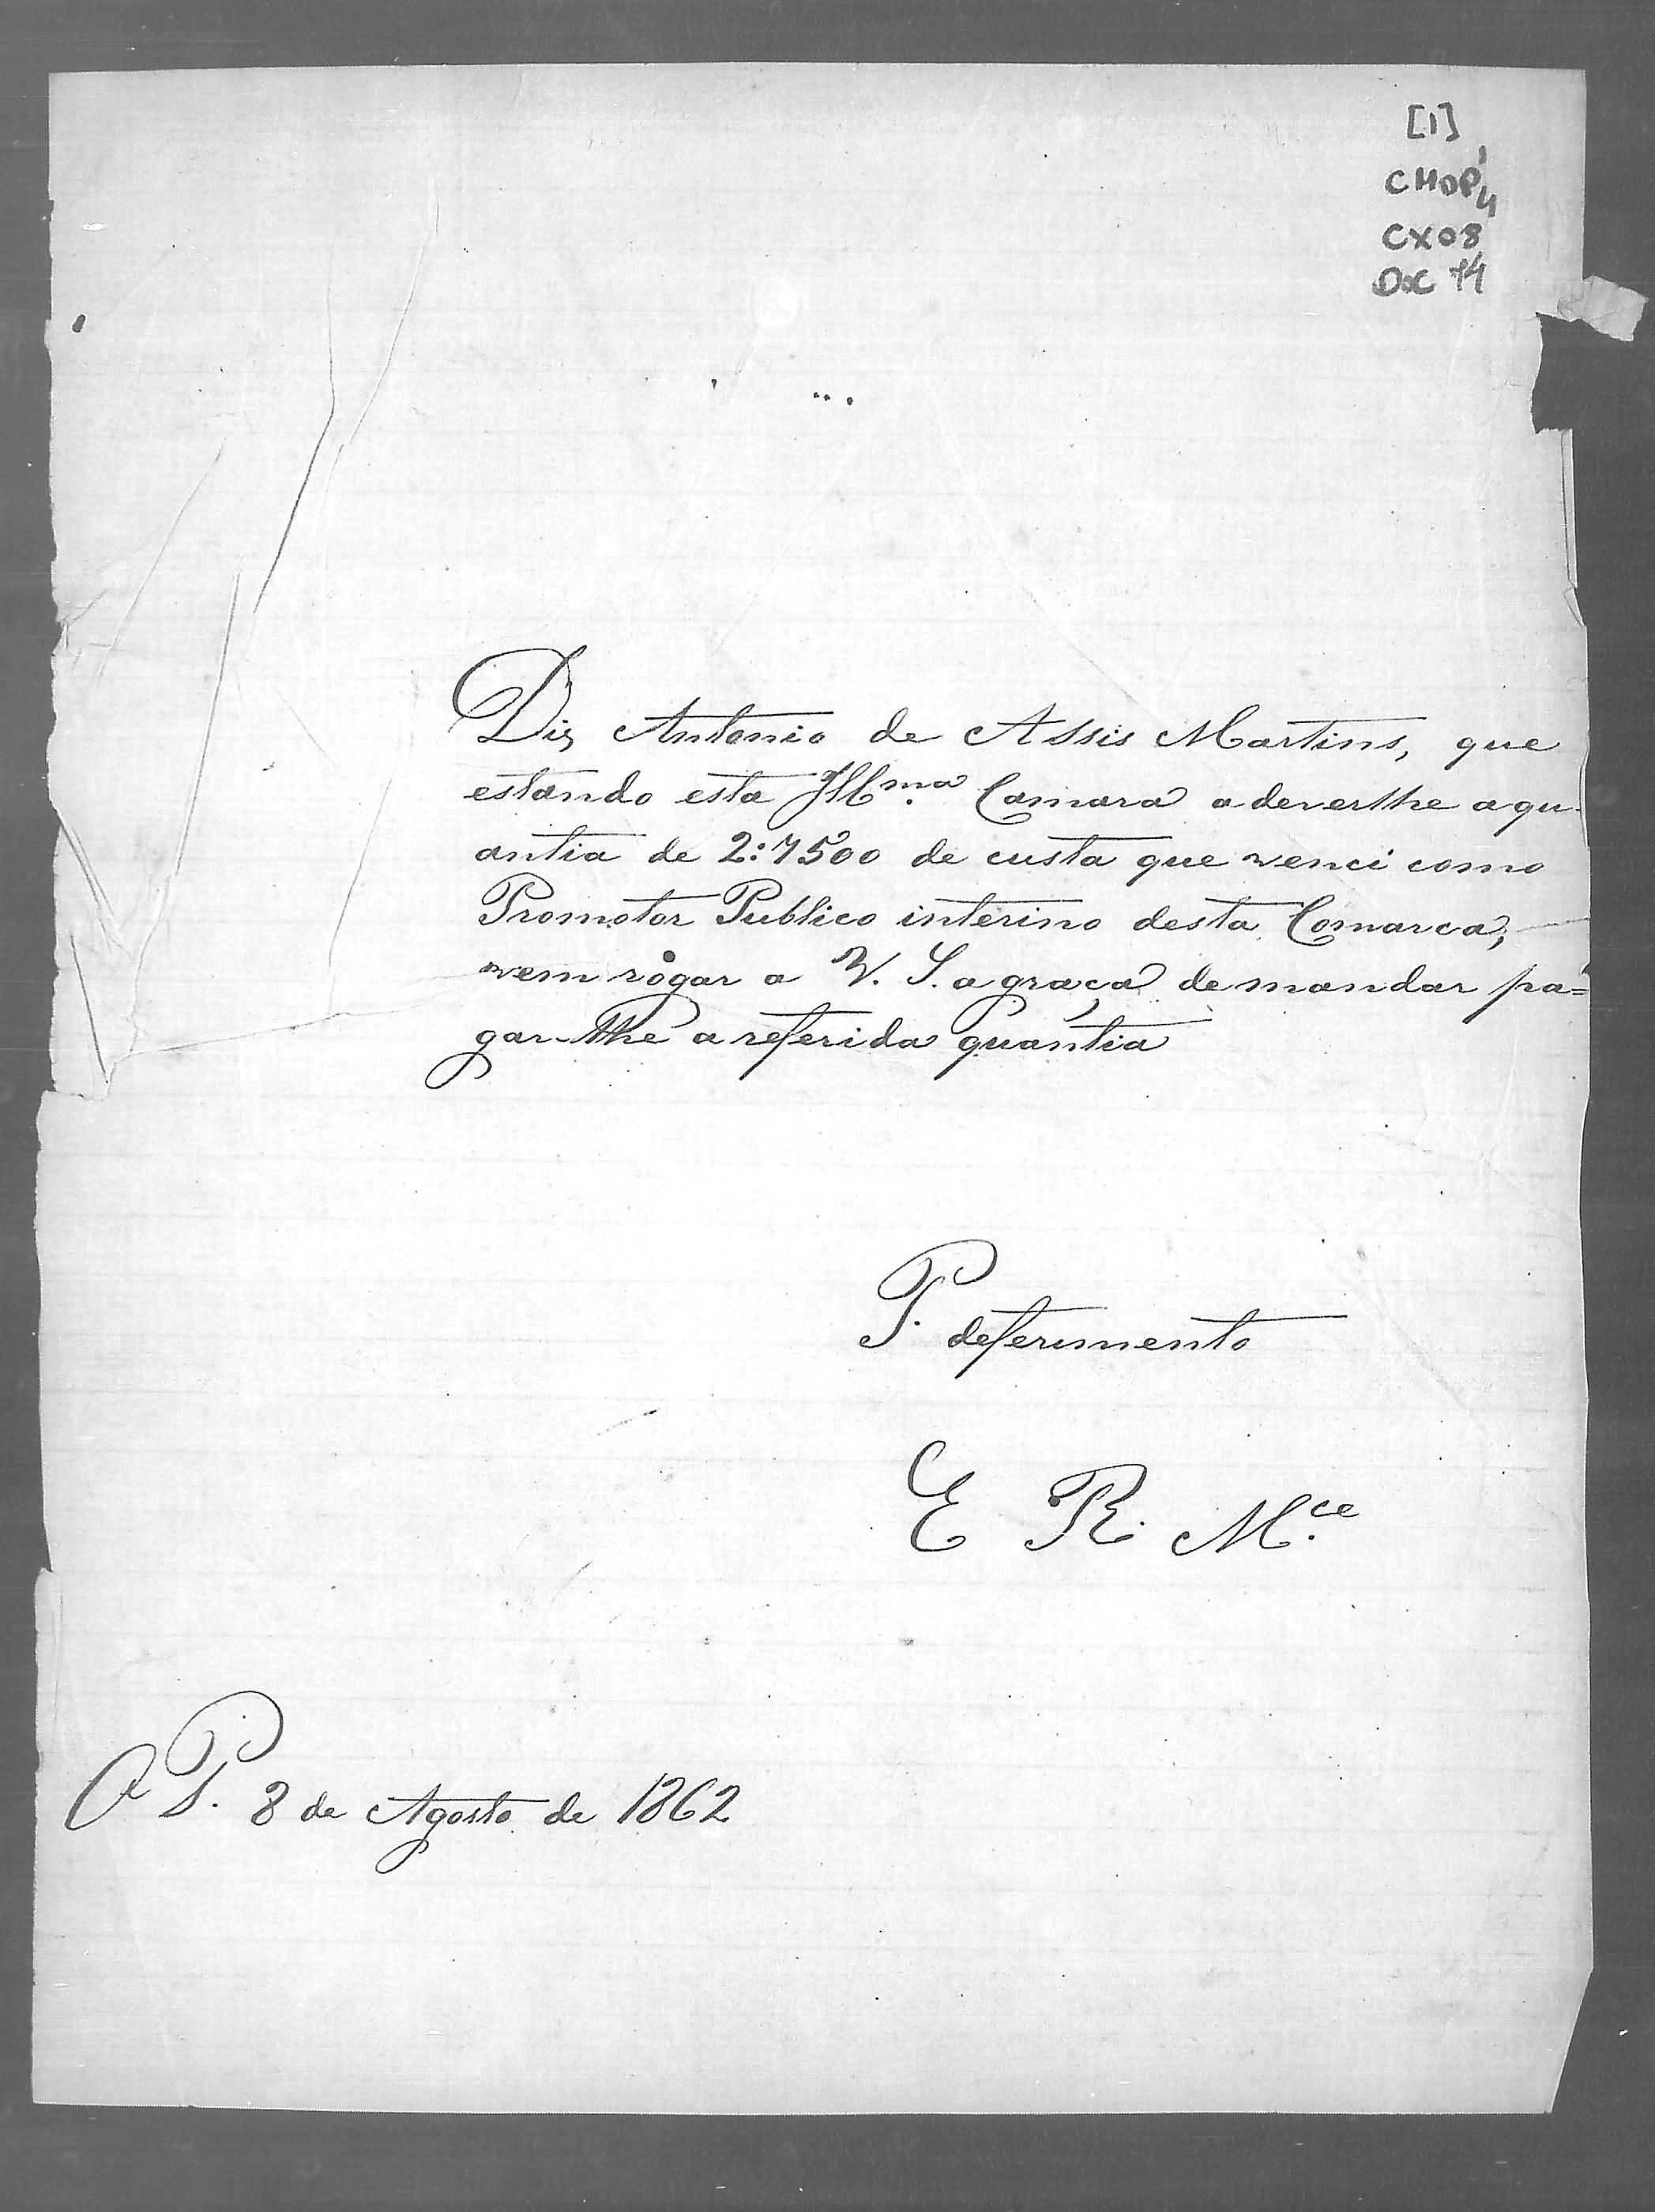 [1]
CMOP
CX08
Doc 74
Diz Antonio de Assis Martins, que
estando esta Illma Camara a deverlhe a qu-
antia de 2:7500 de custa que venci como
Promotor Publico interino desta Comarca,
vem rogar a V. S. a graça de mandar pa=
gar-lhe a referida quantia
P. deferimento
E R. M.ce
O P. 8 de Agosto de 1862